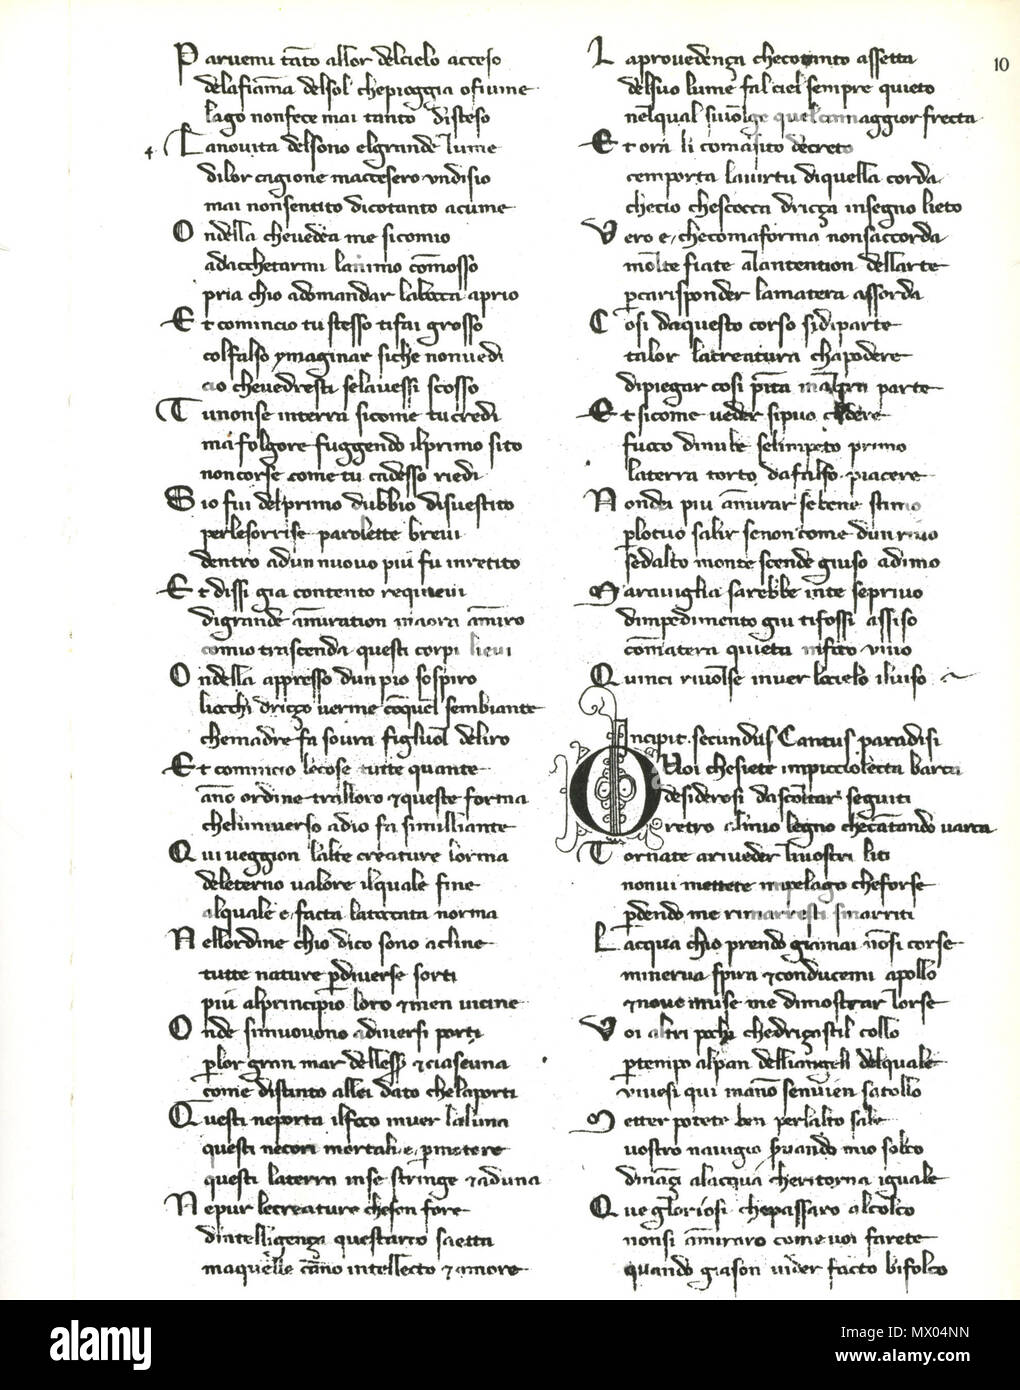 Parvemi tãto allor delcielo acceso
delafiãma delsol chepioggia ofiume
lago nonfece mai tanto disteso
Lanovita delsono elgrande lume
dilor cagione maccesero undisio
mai nonsentito dicotanto acume
Ondella chevedea me sicomio
adacchetarmi lanimo cõmosso
pria chio adomandar labocca aprio
Et comincio tu stesso tifai grosso
colfalso ymaginar siche nonvedi
cio chevedresti selavessi scosso
Tu nonse interra sicome tucredi
ma folgore fuggendo ilprimo sito
noncorse come tu cadesso riedi
Sio fui delprimo dubbio disvestito
perlesorrise parolette brevi
dentro adun nuovo piu fu inretito
Et dissi gia contento requievi
digrande ãmiration maora ãmiro
comio trascenda questi corpi lievi
Ondella appresso dun pio sospiro
liocchi driçço verme cõquel sembiante
chemadre fa sovra figluol deliro
Et comincio lecose tutte quante
ãno ordine tralloro et queste forma
cheluniverso adio fa simiilliante
Qui veggion lalte creature lorma
deleterno valore ilquale fine
alquale e facta latoccata norma
Nellordine chio dico sono acline
tutte nature p̱diverse sorti
piu alprincipio loro et men vicine
Onde simuovono adiversi porti
p̱lor gran mar dellesse et ciascuna
come distinto allei dato chelaporti
Questi neporta ilfoco inver laluna
questi necori mortali e p̱motore
questi laterra inse stringe et aduna
Nepur lecreature cheson fore
dintelligença questarco saetta
maquelle cãno intellecto et amore
Laprovedença checotanto assetta
delsuo lume fal ciel sempre quieto
nelqual sivolge quel camaggior frecta
Et ora li comasito decreto
cemporta lavirtu diquella corda
checio chescocca driçça insegno lieto
Vero e checomaforma nonsaccorda
molte fiate alantention dellarte
p̱carisponder lamatera assorda
Cosi daquesto corso sidiparte
talor lacreatura chapodere
dipiegar cosi pĩta in altra parte
Et sicome veder sipuo cadere
fuoco dinube selimpeto primo
laterra torto dafalso piacere
Non dei piu ãmirar sebene stimo
p̱lotuo salir senon come dun rivo
sedalto monte scende giuso adimo
Maraviglia sarebbe inte seprivo
dimpedimento giu tifossi assiso
comatera quieta infoco vivo
Quinci rivolse inver locielo ilviso
Incipit secundus Cantus paradisi
O Voi chesiete impiccioletta barca
desiderosi dascoltar seguiti
retro almio legno checãtando varca
Tornate ariveder livostri liti
nonvi mettete impelago cheforse
p̱dendo me rimarresti smarriti
Lacqua chio prendo giamai nõsi corse
minerva spira et conducemi apollo
et nove muse me dimostrar lorse
Voi altri pochi chedriçastil collo
p̱tempo alpan delliangeli delquale
vivesi qui manõ senvien satollo
Metter potete ben perlalto sale
vostro navigio servando mio solco
dinãçi alacqua cheritorna iguale
Que gloriosi chepassaro alcolco
nonsi ãmiraro come voi farete
quando giason vider facto bifolco
10
alamy
Image ID: MX04NN
www.alamy.com